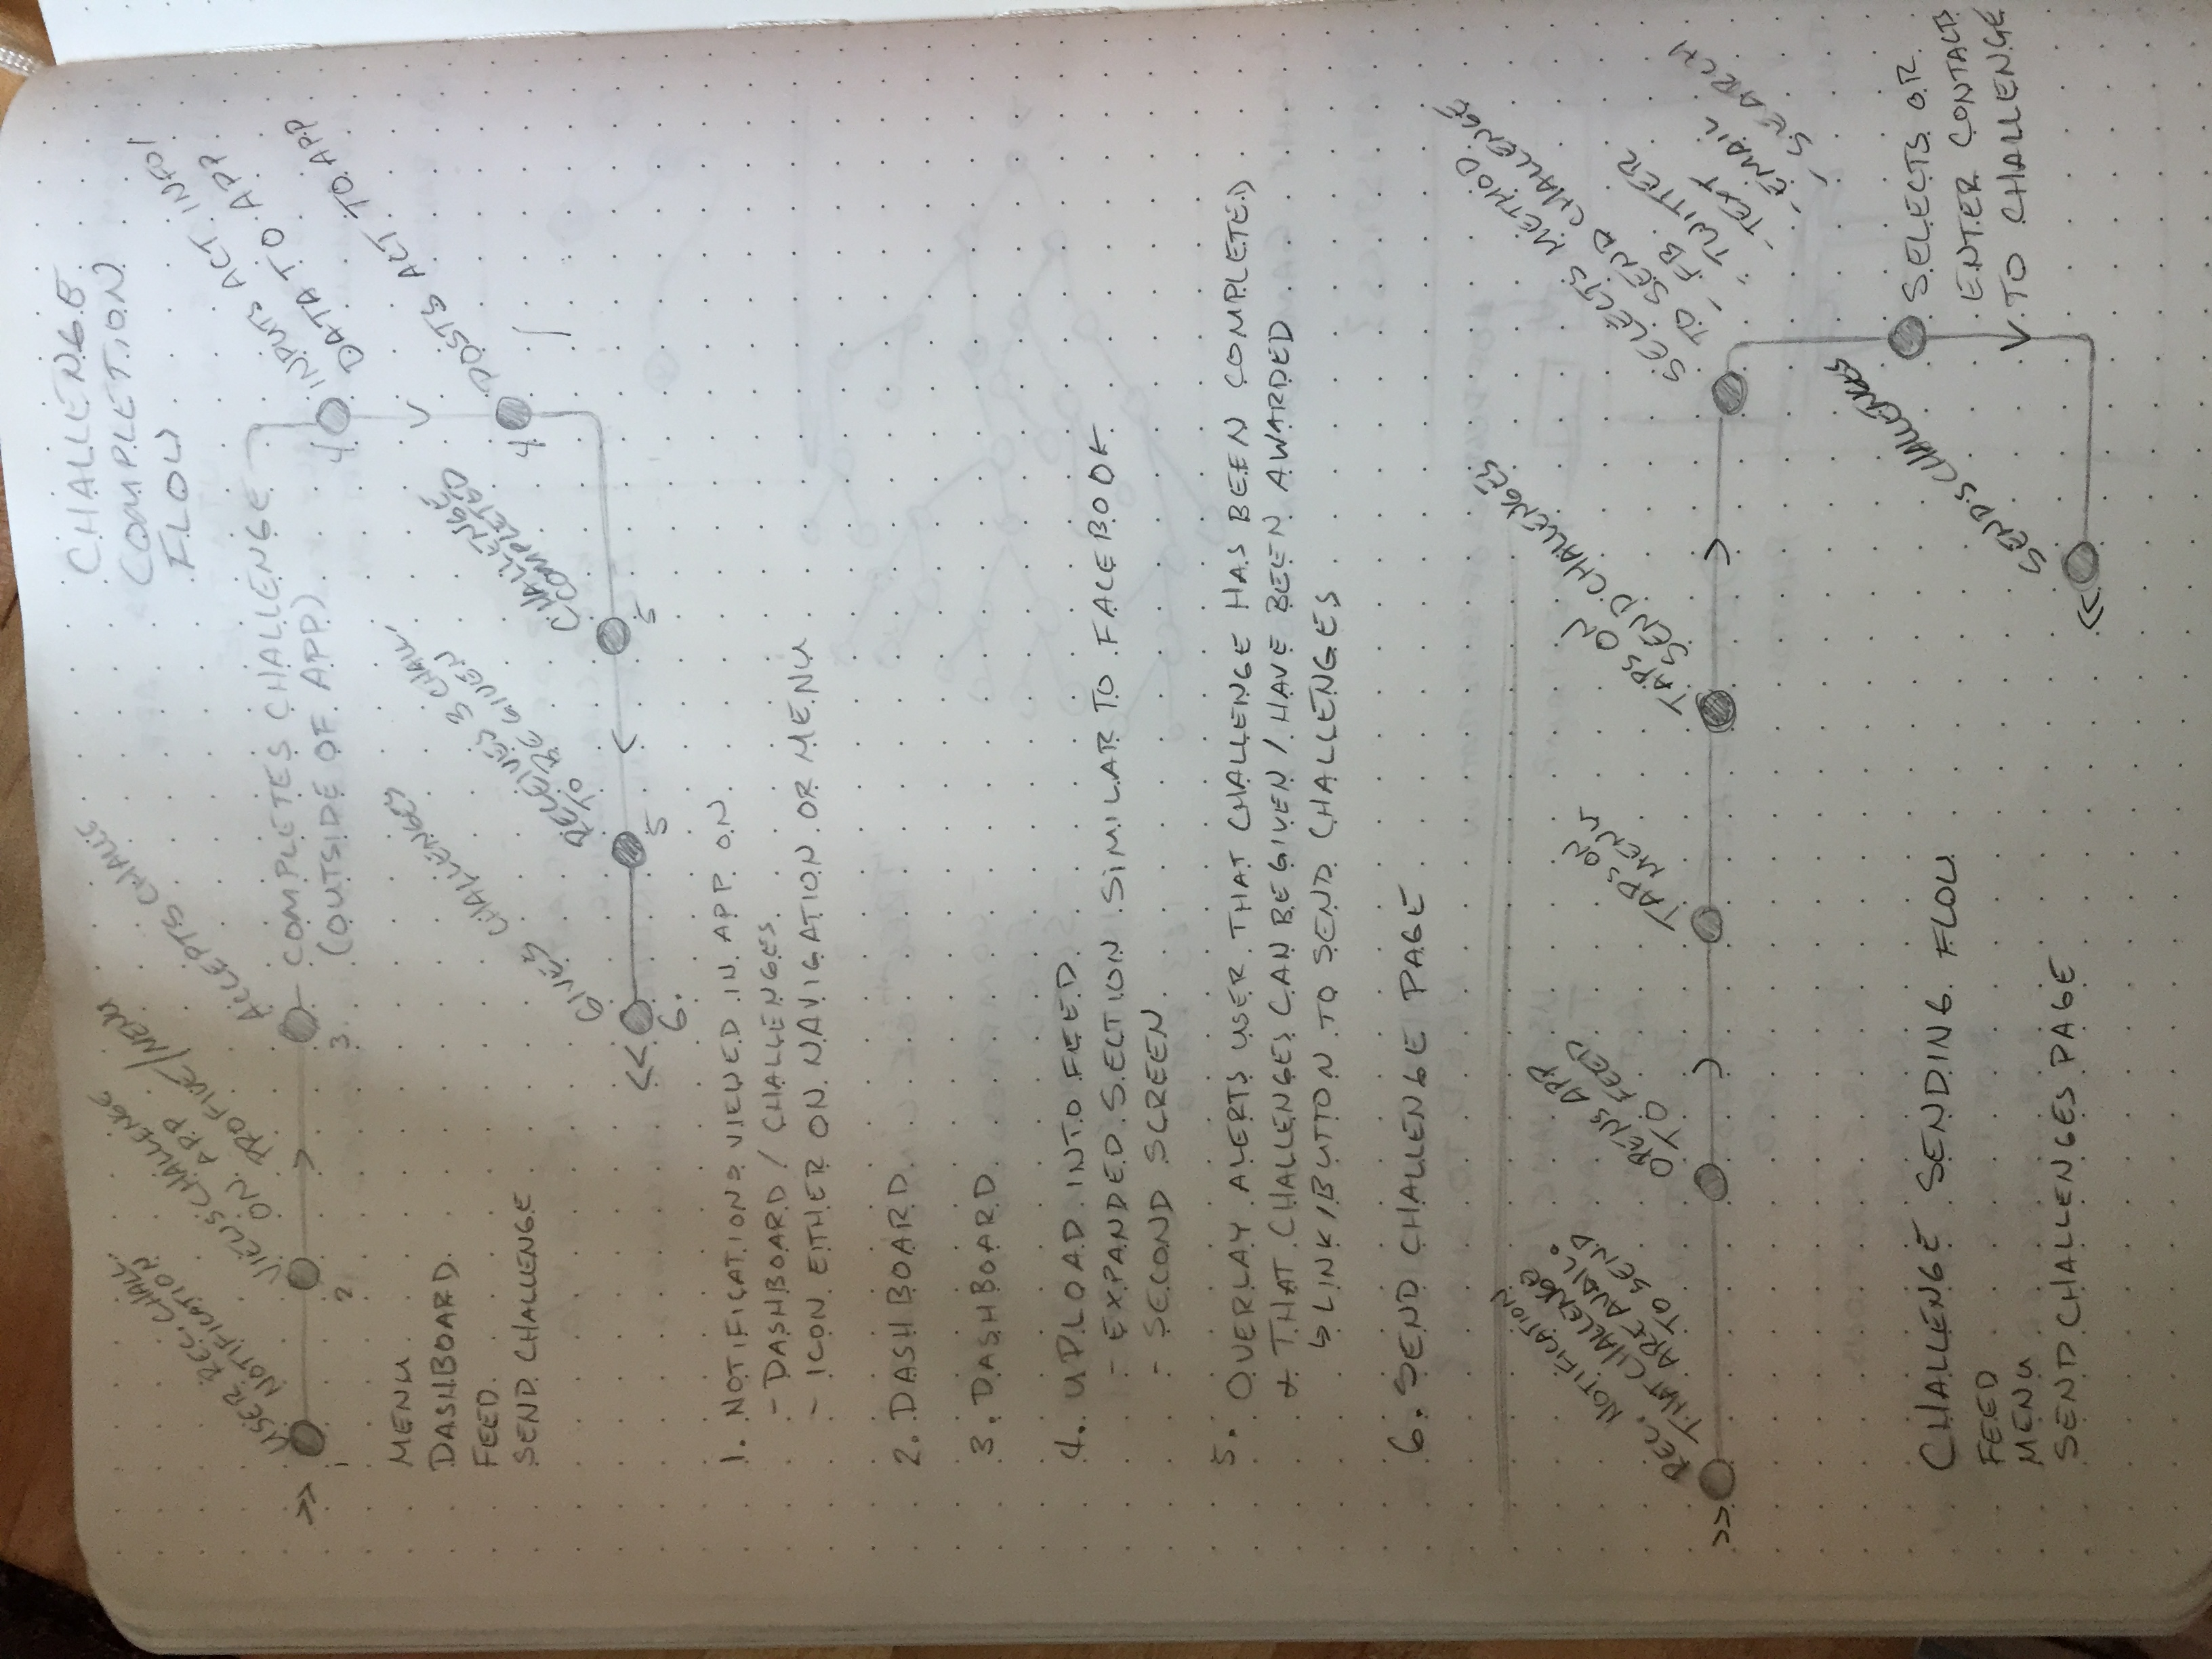 CHALLENGE
COMPLETION
FLOW
USER REC. CHALL.
NOTIFICATION
VIEWS CHALLENGE
ON APP
PROFILE/MENU
ACCEPTS CHALLE
COMPLETES CHALLENGE
(OUTSIDE OF APP)
INPUTS ACT INFO/
DATA TO APP
1
2
3
4
MENU
DASHBOARD
FEED
SEND CHALLENGE
POSTS ACT TO APP
4
CHALLENGE
COMPLETED
5
RECEIVES 3 CHALL.
TO BE GIVEN
5
GIVES CHALLENGES
6.
1. NOTIFICATIONS VIEWED IN APP ON
- DASHBOARD / CHALLENGES
- ICON EITHER ON NAVIGATION OR MENU
2. DASHBOARD
3. DASHBOARD
4. UPLOAD INTO FEED
- EXPANDED SECTION SIMILAR TO FACEBOOK
- SECOND SCREEN
5. OVERLAY ALERTS USER THAT CHALLENGE HAS BEEN COMPLETED
& THAT CHALLENGES CAN BE GIVEN / HAVE BEEN AWARDED
↳ LINK/BUTTON TO SEND CHALLENGES
6. SEND CHALLENGE PAGE
REC. NOTIFICATION
THAT CHALLENGES
ARE AVAIL.
TO SEND
OPENS APP
TO FEED
TAPS ON
MENU
TAPS ON
SEND CHALLENGES
SELECTS METHOD
TO SEND CHALLENGE
- FB
- TWITTER
- TEXT
- EMAIL
- SEARCH
SELECTS OR
ENTER CONTACTS
TO CHALLENGE
SENDS CHALLENGES
CHALLENGE SENDING FLOW
FEED
MENU
SEND CHALLENGES PAGE